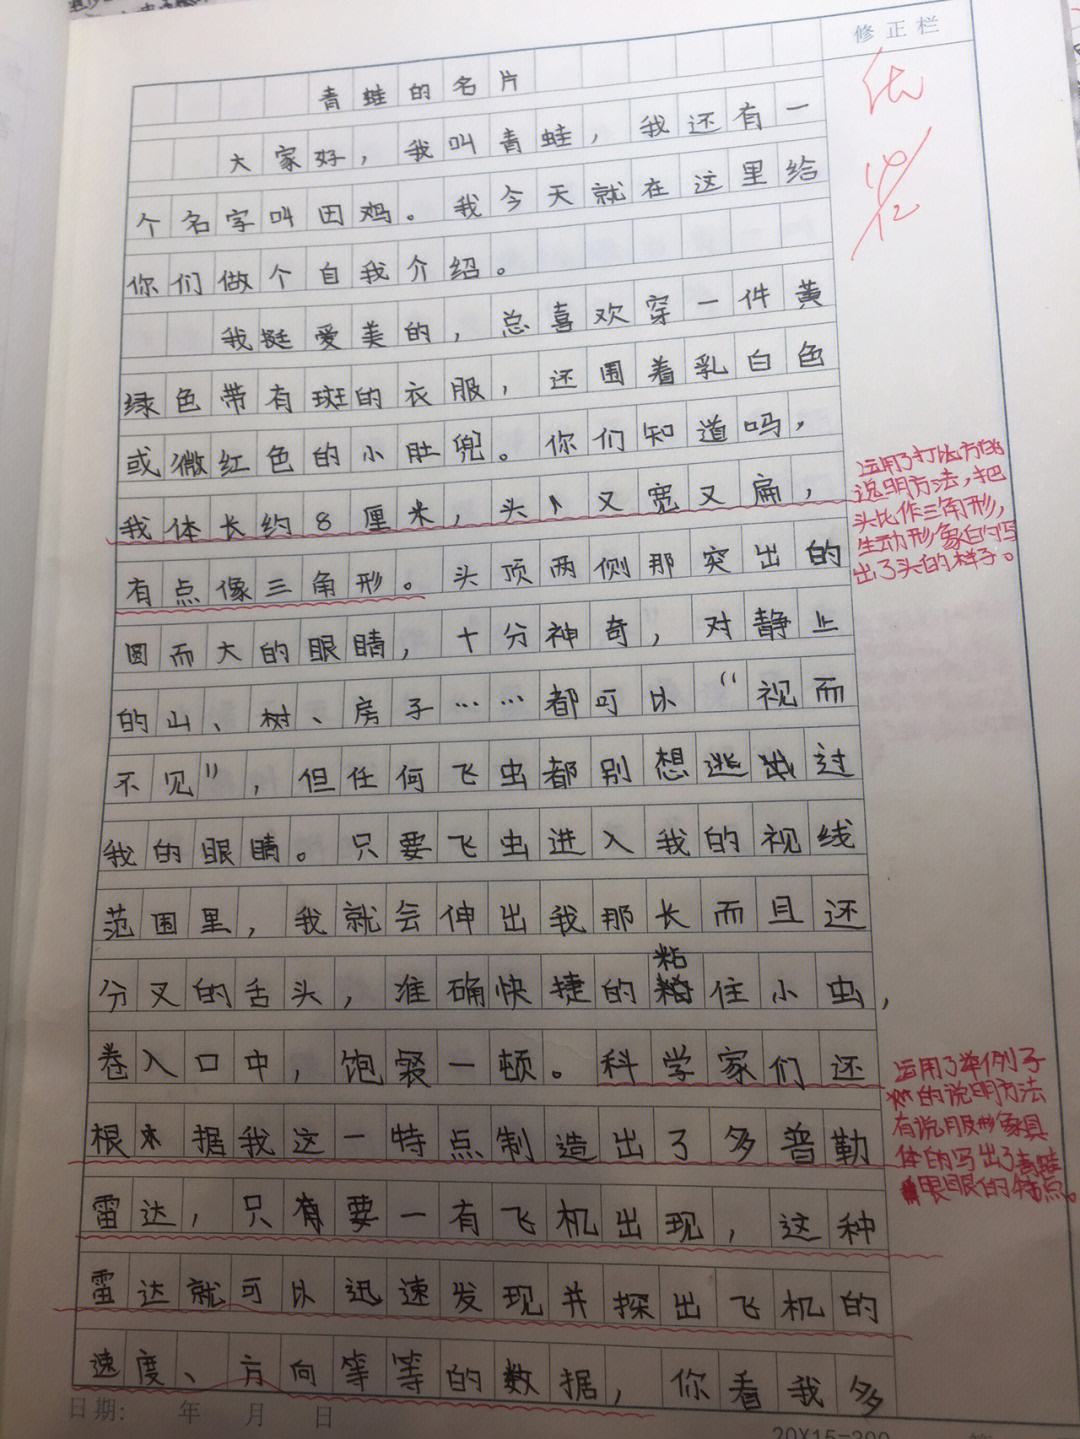 修正栏
青蛙的名片
大家好，我叫青蛙，我还有一
个名字叫田鸡。我今天就在这里给
你们做个自我介绍。
我挺爱美的，总喜欢穿一件黄
绿色带有斑的衣服，还围着乳白色
或微红色的小肚兜。你们知道吗，
我体长约8厘米，头、又宽又扁，
有点像三角形。头顶两侧那突出的
圆而大的眼睛，十分神奇，对静止
的山、树、房子……都可以“视而
不见”，但任何飞虫都别想逃过
我的眼睛。只要飞虫进入我的视线
范围里，我就会伸出我那长而且还
分叉的舌头，准确快捷的粘住小虫，
卷入口中，饱餐一顿。科学家们还
根据我这一特点制造出了多普勒
雷达，只要一有飞机出现，这种
雷达就可以迅速发现并探出飞机的
速度、方向等等的数据，你看我多
运用了打比方的
说明方法，把
头比作三角形，
生动形象的写
出了头的样子。
运用了举例子
的说明方法
有说服形象具
体的写出了青蛙
眼的特点。
优
日期： 年 月 日
20X15=300